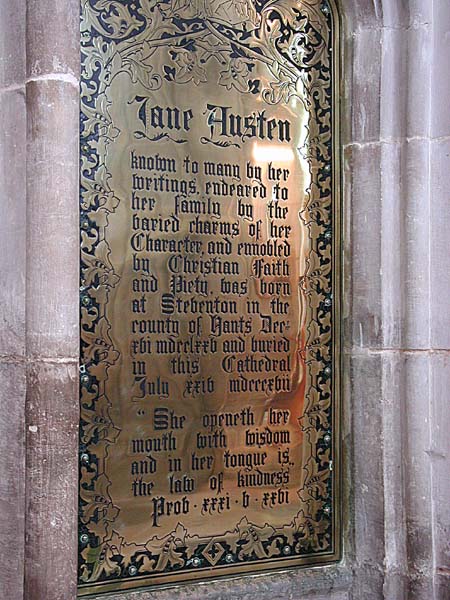 Jane Austen
known to many by her
writings, endeared to
her family by the
varied charms of her
Character, and ennobled
by Christian Faith
and Piety, was born
at Steventon in the
county of Hants Dec.
xvi mdcclxxv and buried
in this Cathedral
July xxiv mdcccxvii
"She openeth her
mouth with wisdom
and in her tongue is
the law of kindness"
Prov. xxxi. v. xxvi